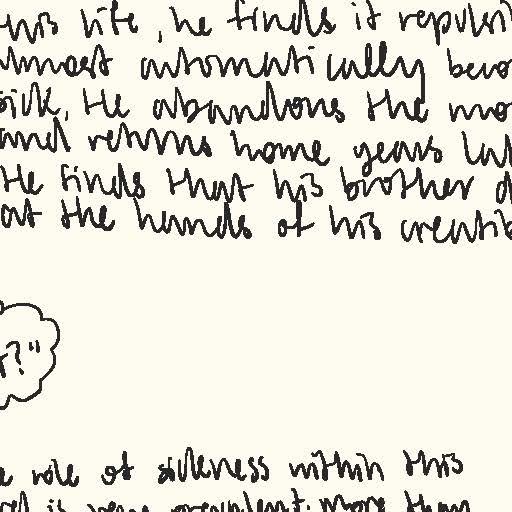 this life, he finds it repulsi
almost automatically beco
sick. He abandons the mo
and returns home years lat
He finds that his brother d
at the hands of his creatio
r?"
e role of sickness within this
red is very prevalent. More than